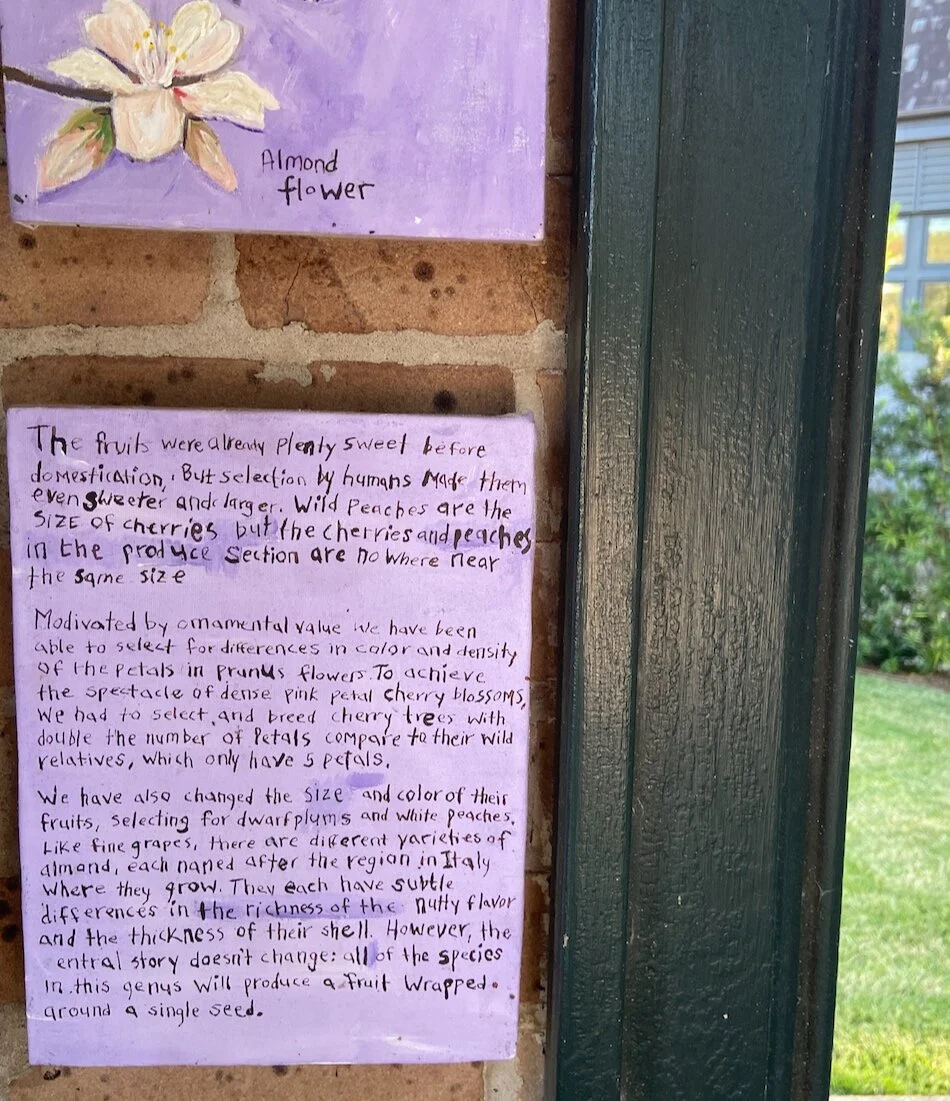 Almond
flower
The fruits were already plenty sweet before
domestication, But selection by humans Made them
even sweeter and larger. Wild Peaches are the
SIZE OF cherries but the cherries and peaches
in the produce section are no where near
the same size
Modivated by ornamental value we have been
able to select for differences in color and density
of the petals in prunus flowers. To achieve
the spectacle of dense pink petal cherry blossoms,
We had to select and breed cherry trees with
double the number of Petals compare to their wild
relatives, which only have 5 petals.
We have also changed the size and color of their
fruits, selecting for dwarf plums and white peaches.
Like fine grapes, there are different varieties of
almond, each named after the region in Italy
where they grow. They each have subtle
differences in the richness of the nutty flavor
and the thickness of their shell. However, the
entral story doesn't change: all of the species
in this genus will produce a fruit wrapped
around a single seed.